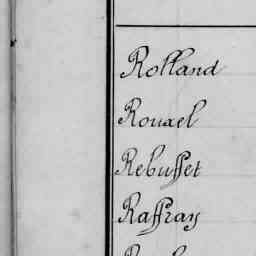 Rolland
Rouael
Rebuffet
Raffray